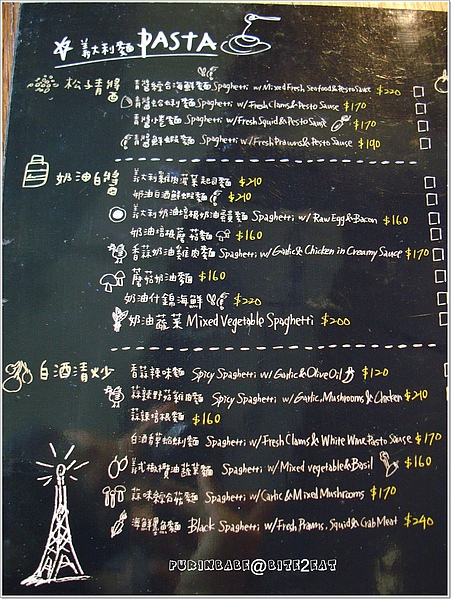 義大利麵 PASTA
松子青醬
青醬綜合海鮮麵 Spaghetti w/ Mixed Fresh Seafood & Pesto Sauce $220
青醬蛤蜊麵 Spaghetti w/ Fresh Clams & Pesto Sauce $170
青醬小卷麵 Spaghetti w/ Fresh Squid & Pesto Sauce $170
青醬鮮蝦麵 Spaghetti w/ Fresh Prawns & Pesto Sauce $190
奶油白醬
義大利雞肉菠菜起司麵 $210
奶油白酒鮮蝦麵 $210
義大利奶油培根奶油蛋黃麵 Spaghetti w/ Raw Egg & Bacon $160
奶油培根蘑菇麵 $160
香蒜奶油雞肉麵 Spaghetti w/ Garlic & Chicken in Creamy Sauce $170
蘑菇奶油麵 $160
奶油什錦海鮮 $220
奶油蔬菜 Mixed Vegetable Spaghetti $200
白酒清炒
香蒜辣味麵 Spicy Spaghetti w/ Garlic & Olive Oil $120
蒜辣野菇雞肉麵 Spicy Spaghetti w/ Garlic, Mushrooms & Chicken $210
蒜辣培根麵 $160
白酒蛤蜊麵 Spaghetti w/ Fresh Clams & White Wine Pasto Sause $170
義式橄欖油蔬菜麵 Spaghetti w/ Mixed vegetable & Basil $160
蒜味綜合菇麵 Spaghetti w/ Garlic & Mixed Mushrooms $170
海鮮墨魚麵 Black Spaghetti w/ Fresh Prawns, Squid & Crab Meat $240
PURINBABE@BITE2EAT